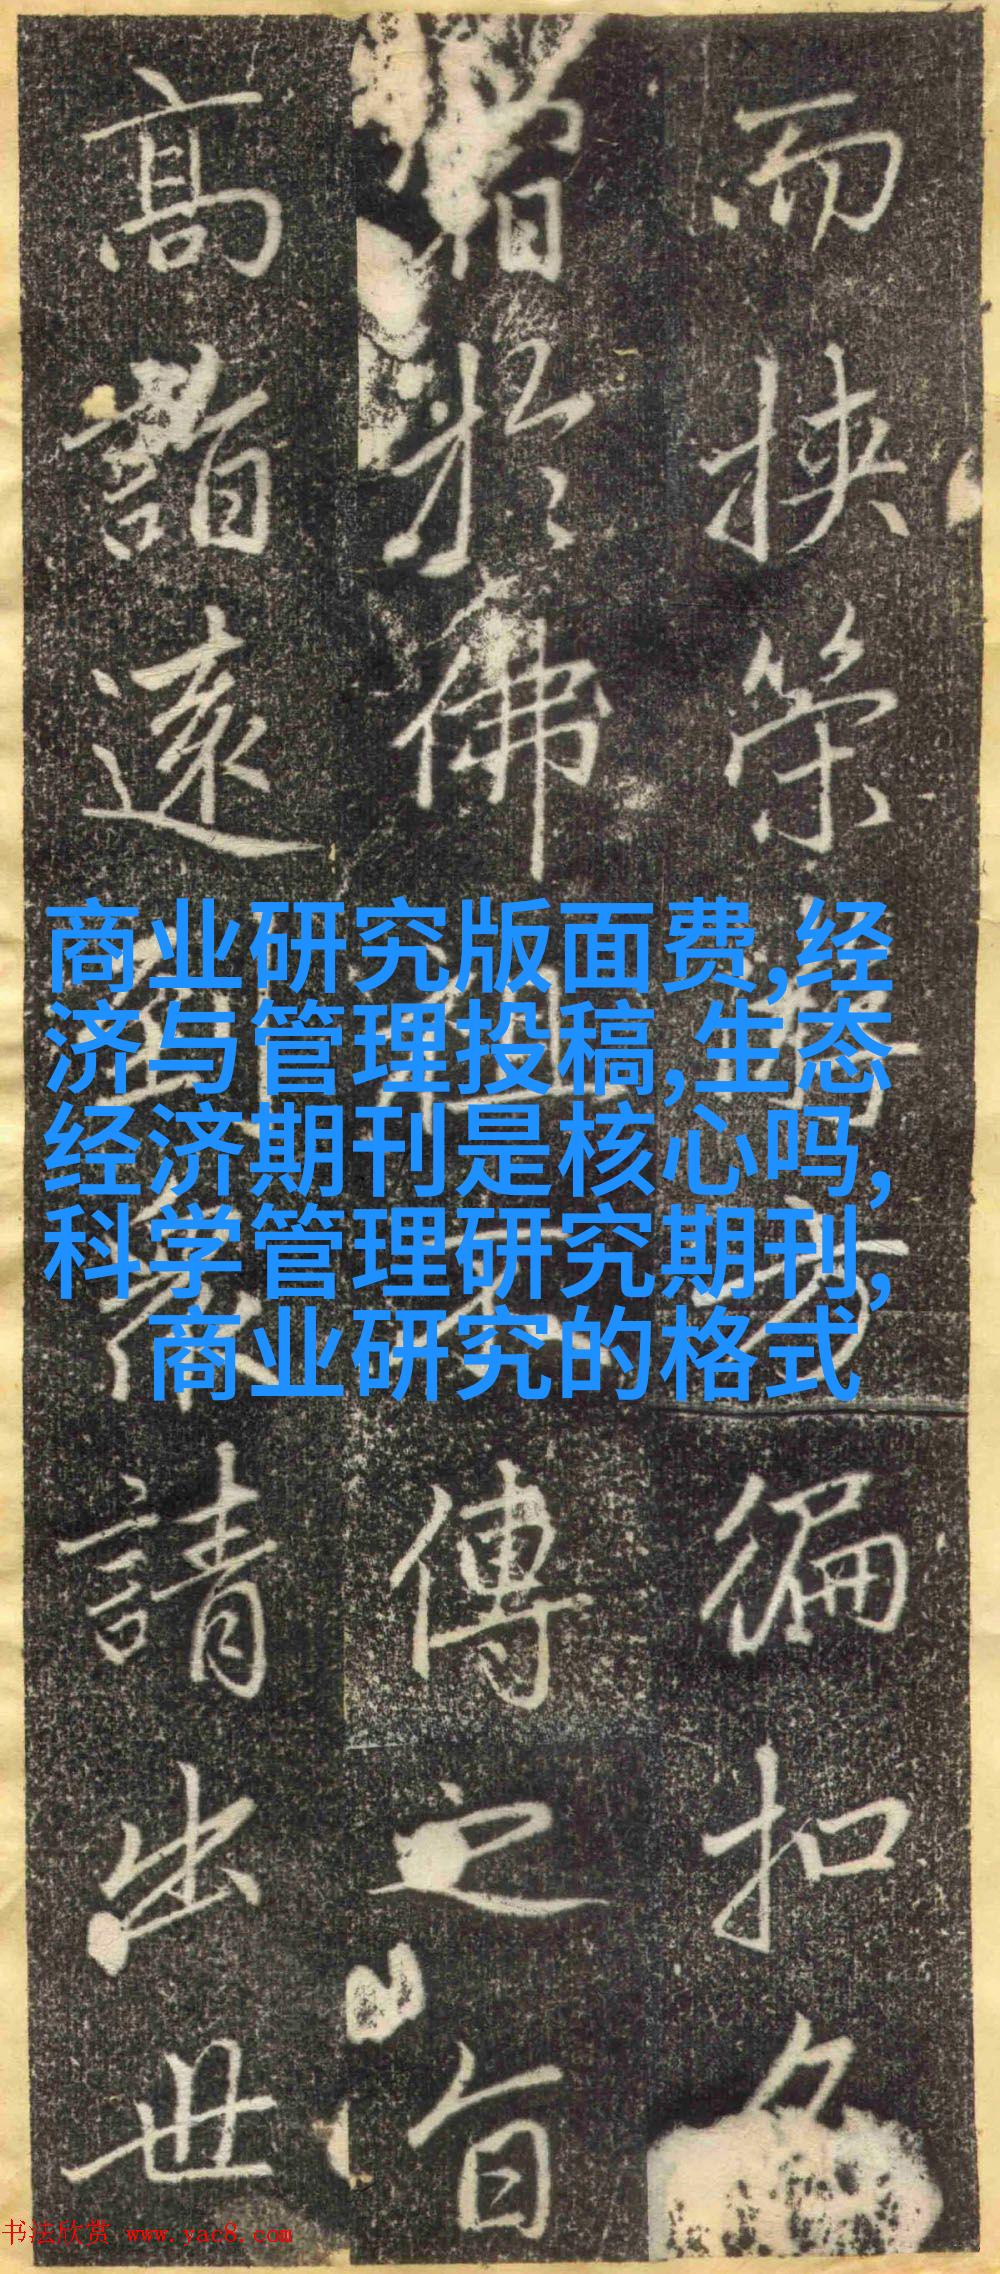 而挟策方徧扣
於佛祖不傳之旨
高詣遠請出世
商业研究版面费,经
济与管理投稿,生态
经济期刊是核心吗,
科学管理研究期刊,
商业研究的格式
书法欣赏 www.yac8.com